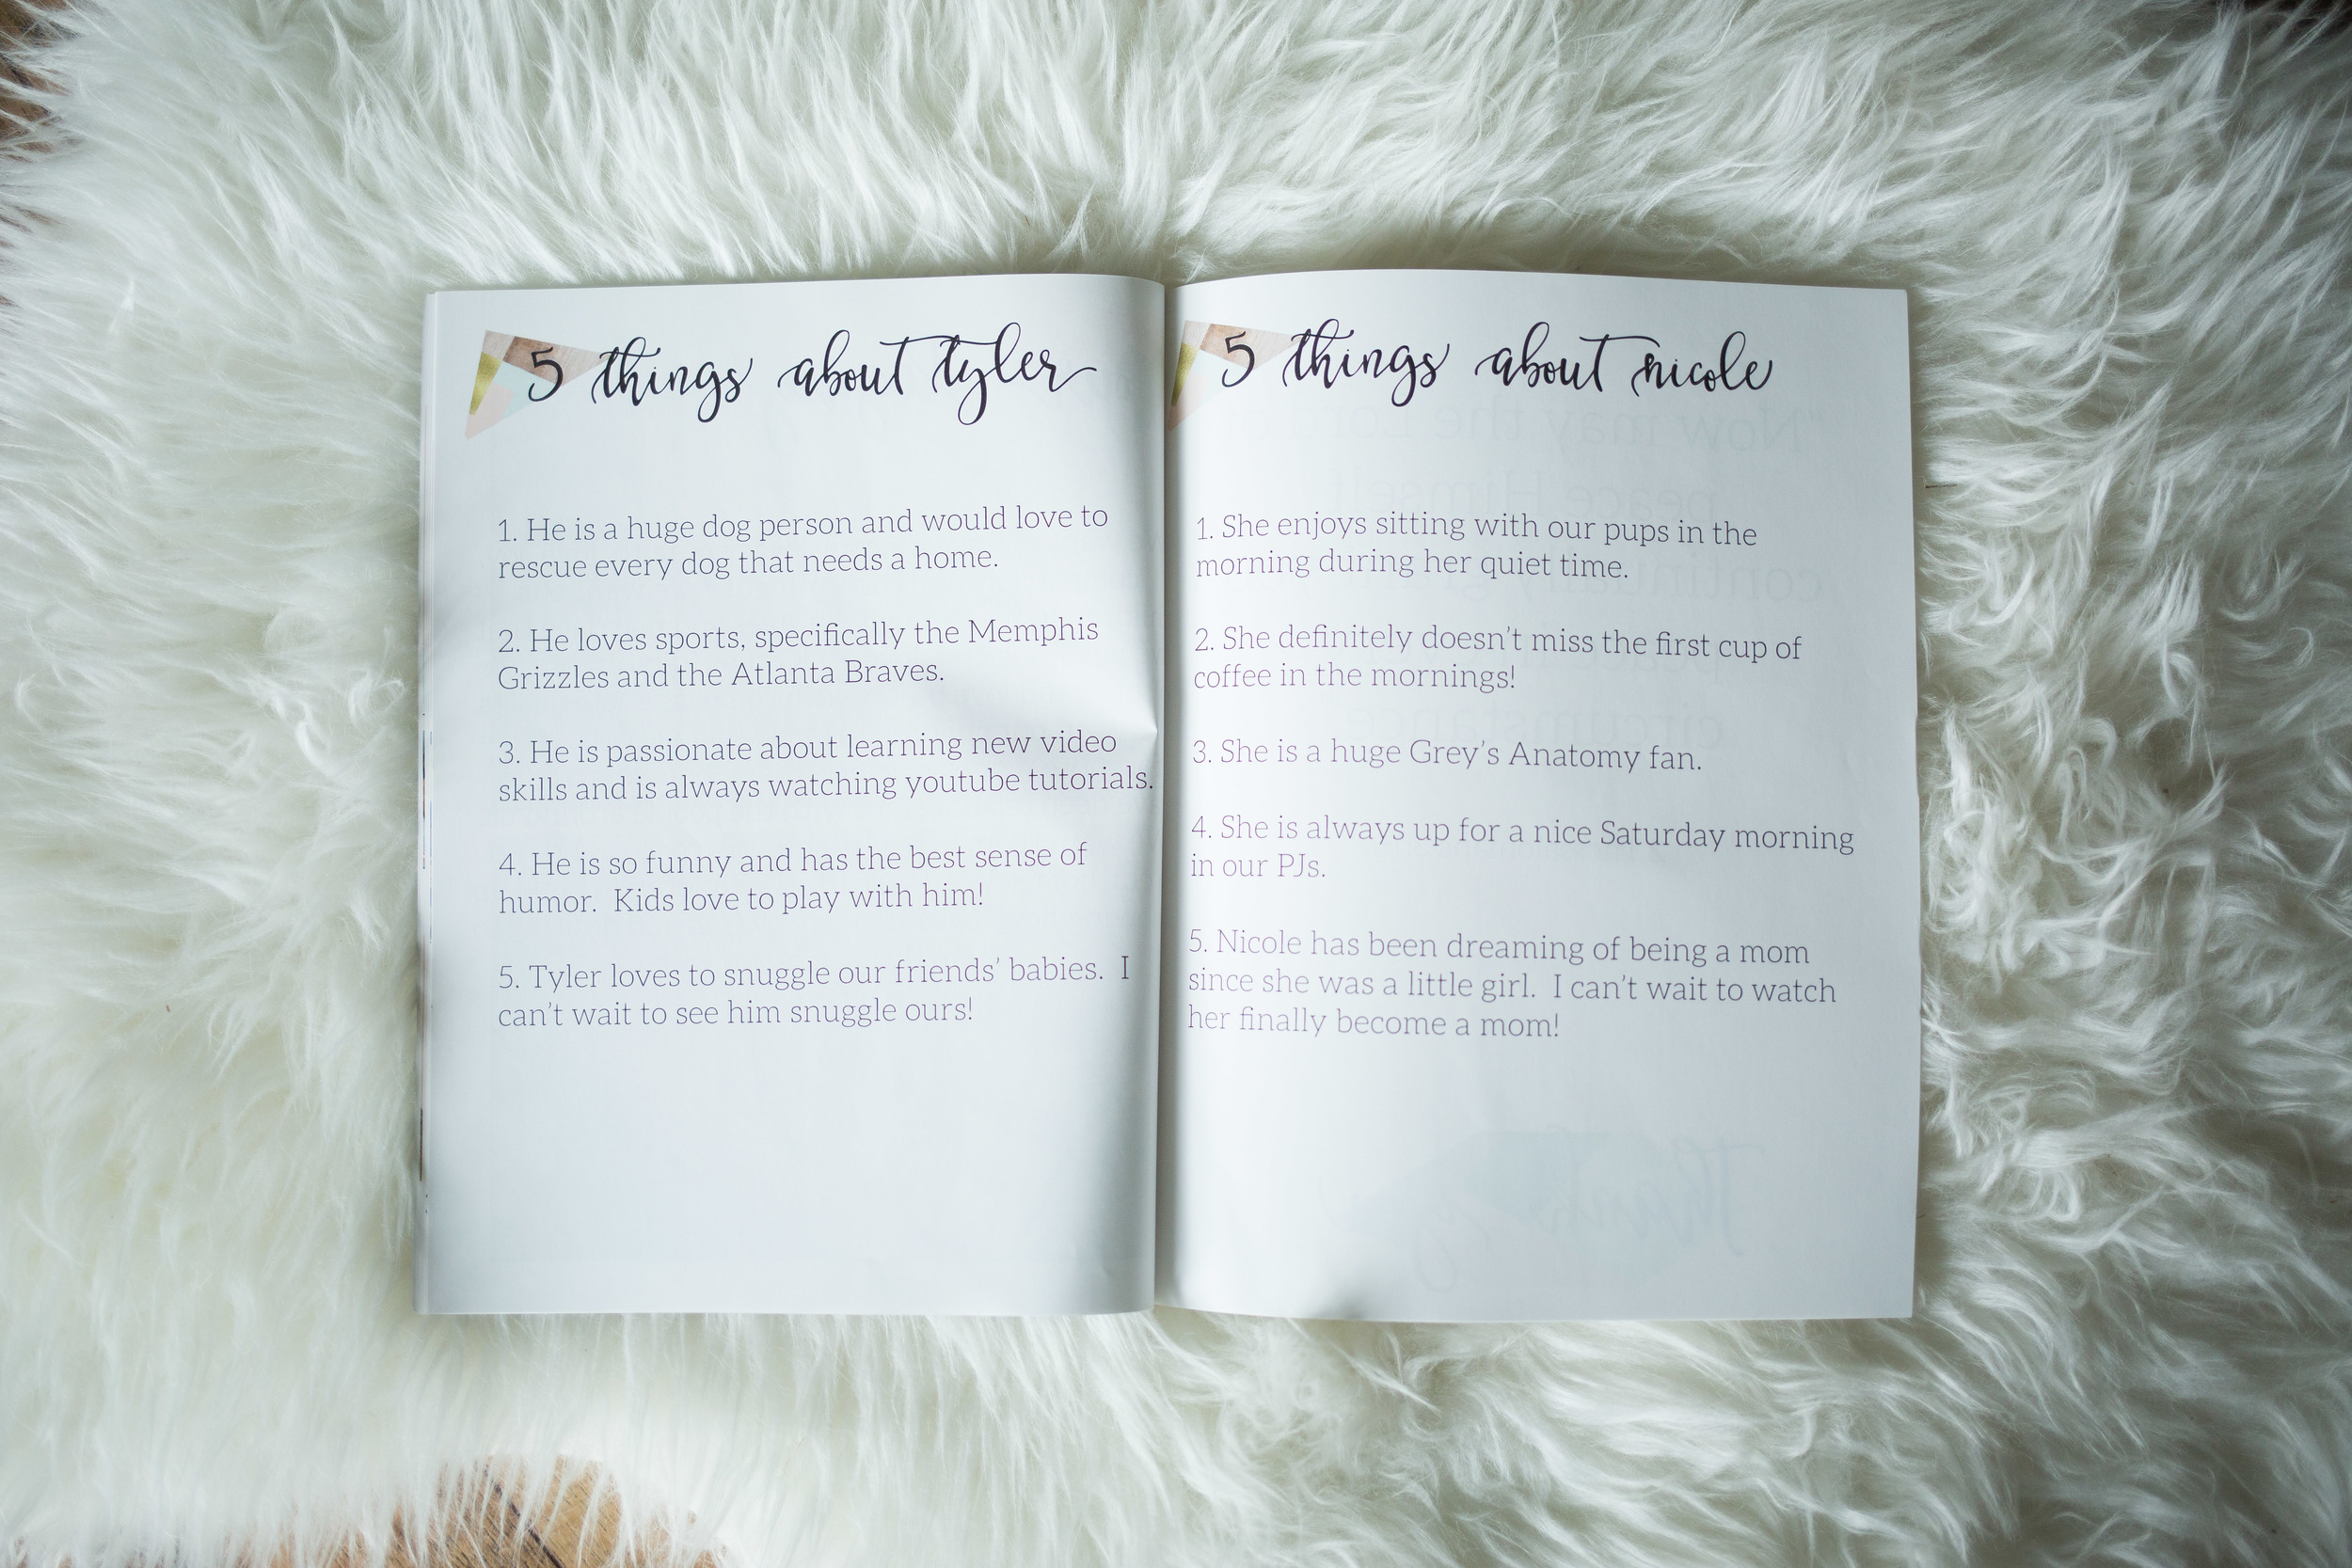 5 things about tyler
1. He is a huge dog person and would love to
rescue every dog that needs a home.
2. He loves sports, specifically the Memphis
Grizzles and the Atlanta Braves.
3. He is passionate about learning new video
skills and is always watching youtube tutorials.
4. He is so funny and has the best sense of
humor.  Kids love to play with him!
5. Tyler loves to snuggle our friends’ babies.  I
can’t wait to see him snuggle ours!
5 things about nicole
1. She enjoys sitting with our pups in the
morning during her quiet time.
2. She definitely doesn’t miss the first cup of
coffee in the mornings!
3. She is a huge Grey’s Anatomy fan.
4. She is always up for a nice Saturday morning
in our PJs.
5. Nicole has been dreaming of being a mom
since she was a little girl.  I can’t wait to watch
her finally become a mom!